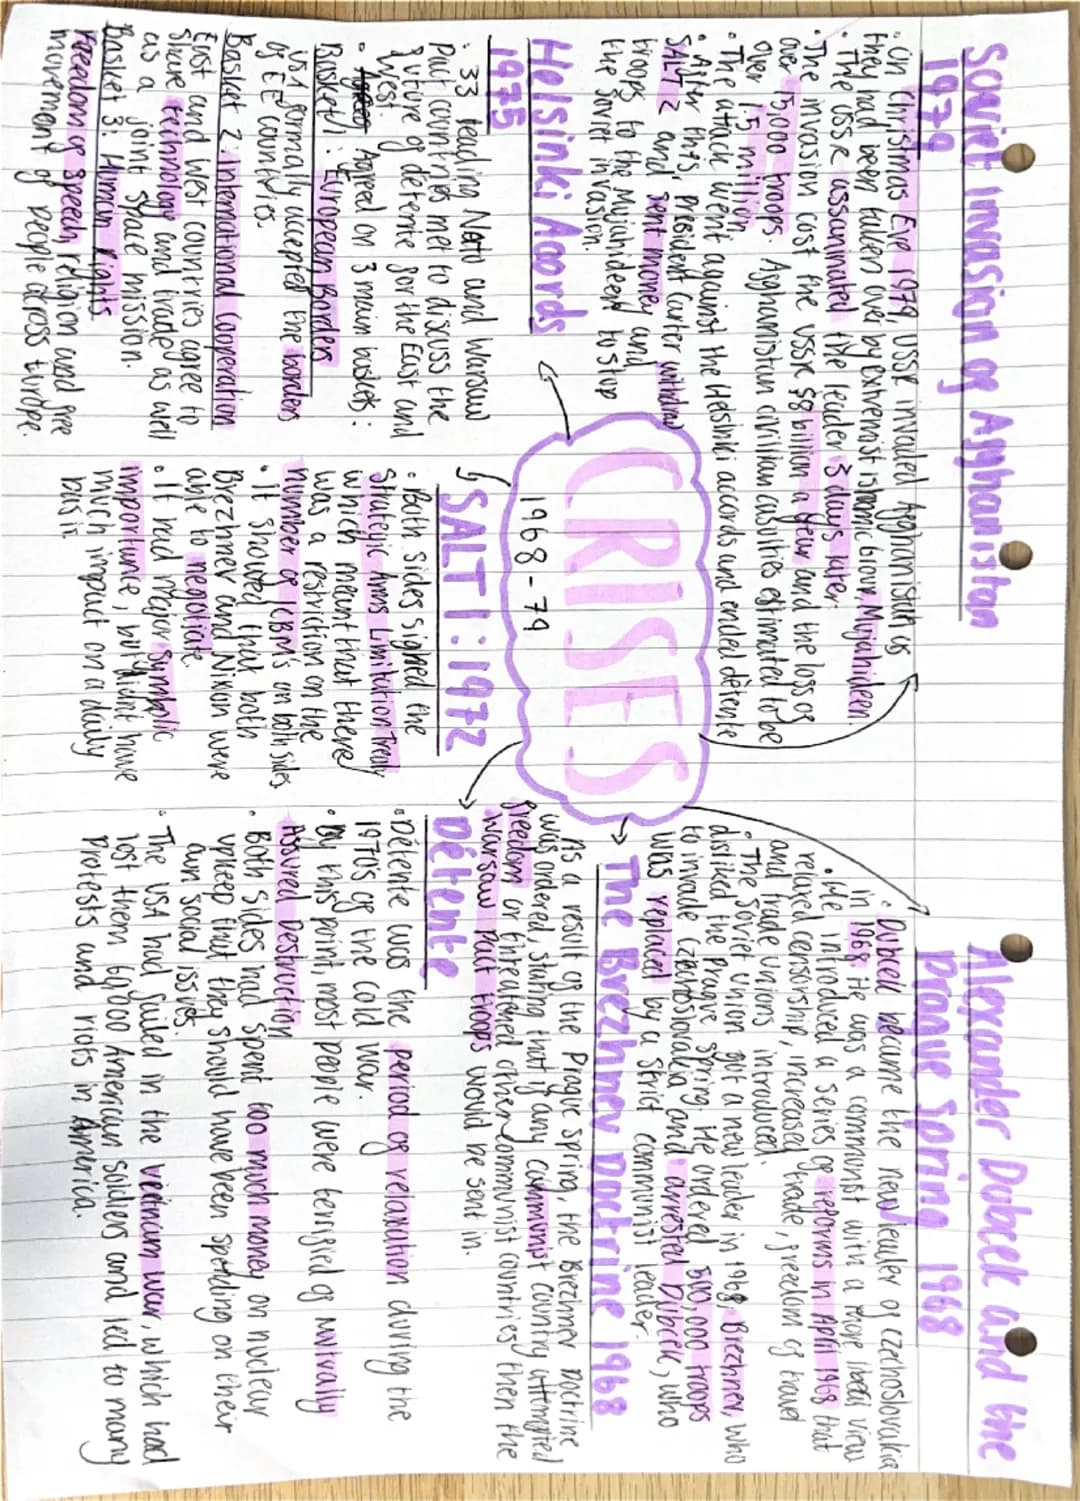 Soviet invasion of Afghanistan
1979
. On Christmas Eve 1979, USSR invaded Afghanistan as
they had been taken over by extremist islamic group, Mujahideen.
. The USSR assasinated the leader 3 days later.
. The invasion cost the USSR $8 billion a year and the loss of
over 15,000 troops. Afghanistan civilian casulties estimated to be
over 1.5 million.
. The attack went against the Helsinki accords and ended détente
. After this, President Carter withdraw
SALT 2 and sent money and
troops to the Mujahideen to stop
the Soviet invasion.
Helsinki Accords
1975
. 33 leading Nato and Warsaw
pact countries met to discuss the
future of détente for the East and
West.
. Agreed on 3 main baskets:
Basket 1: European Borders
USA formally accepted the borders
of EE countries.
Basket 2: international Cooperation
East and West countries agree to
share technology and trade as well
as a joint space mission.
Basket 3: Human Rights
Freedom of speech, religion and free
movement of people across Europe.
CRISES
1968-79
SALT 1: 1972
. Both sides signed the
Strategic Arms Limitation Treaty
which meant that there
was a restriction on the
number of ICBM's on both sides
. it showed that both
Brezhnev and Nixon were
able to negotiate.
. it had major symbolic
importance, but didnt have
much impact on a daily
basis.
Alexander Dubcek and the
Prague Spring 1968
. Dubcek became the new leader of Czechoslovakia
in 1968. He was a communist with a more liberal view
. He introduced a series of reforms in April 1968 that
relaxed censorship, increased trade, freedom of travel
and trade unions introduced.
. The Soviet Union got a new leader in 1968, Brezhnev, who
disliked the Prague Spring. He ordered 500,000 troops
to invade Czechoslovakia and arrested Dubcek, who
was replaced by a strict communist leader.
The Brezhnev Doctrine 1968
As a result of the Prague Spring, the Brezhnev Doctrine
was ordered, stating that if any communist country attempted
freedom or threatened other communist countries then the
Warsaw Pact troops would be sent in.
Détente
. Détente was the period of relaxation during the
1970s of the Cold War.
. By this point, most people were terrified of Mutually
Assured Destruction
. Both sides had spent too much money on nuclear
upkeep that they should have been spending on their
own social issues.
. The USA had failed in the Vietnam War, which had
lost them 60,000 American soldiers and led to many
Protests and riots in America.